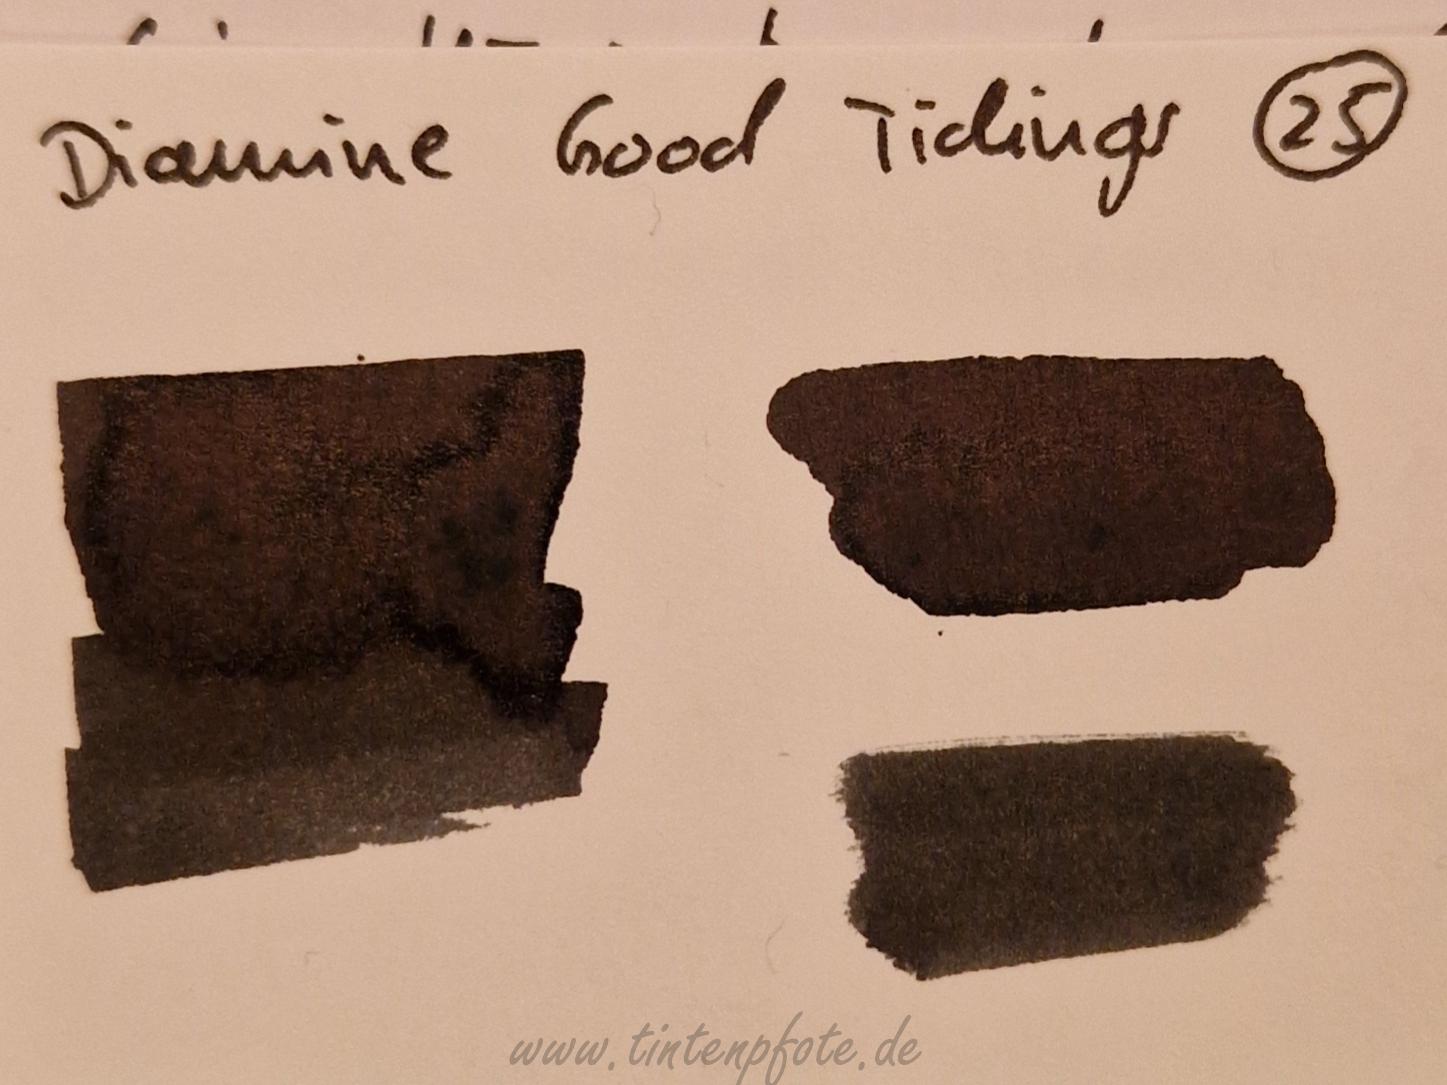 Diamine Good Tidings 25
www.tintenpfote.de